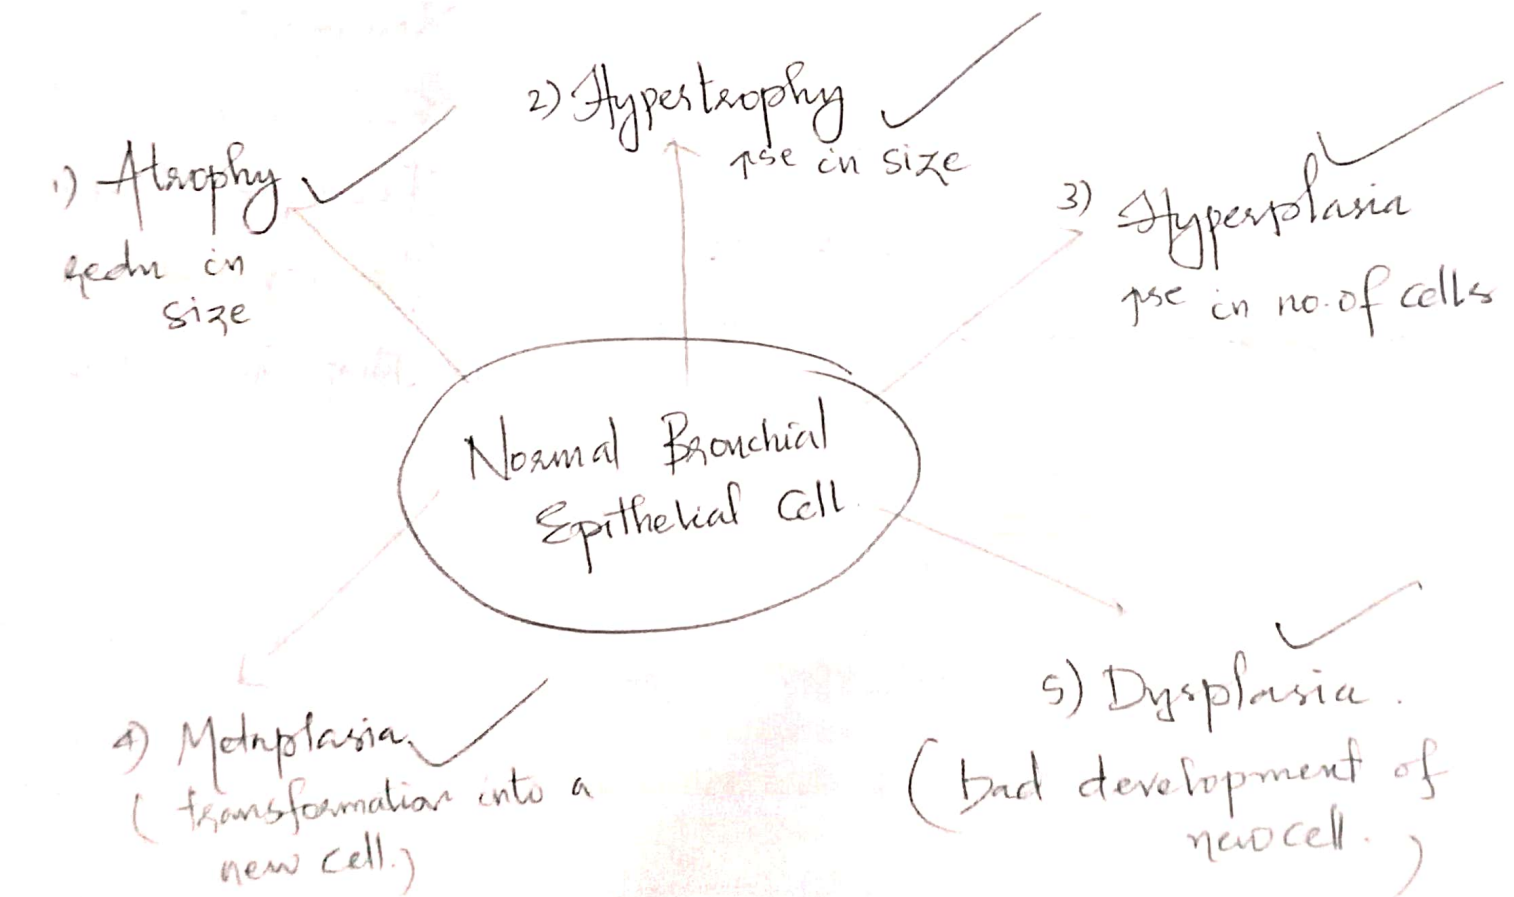 1) Atrophy
redn in
size
2) Hypertrophy
↑se in size
3) Hyperplasia
↑se in no. of cells
Normal Bronchial
Epithelial Cell.
4) Metaplasia
( transformation into a
new cell.)
5) Dysplasia.
(bad development of
new cell.)